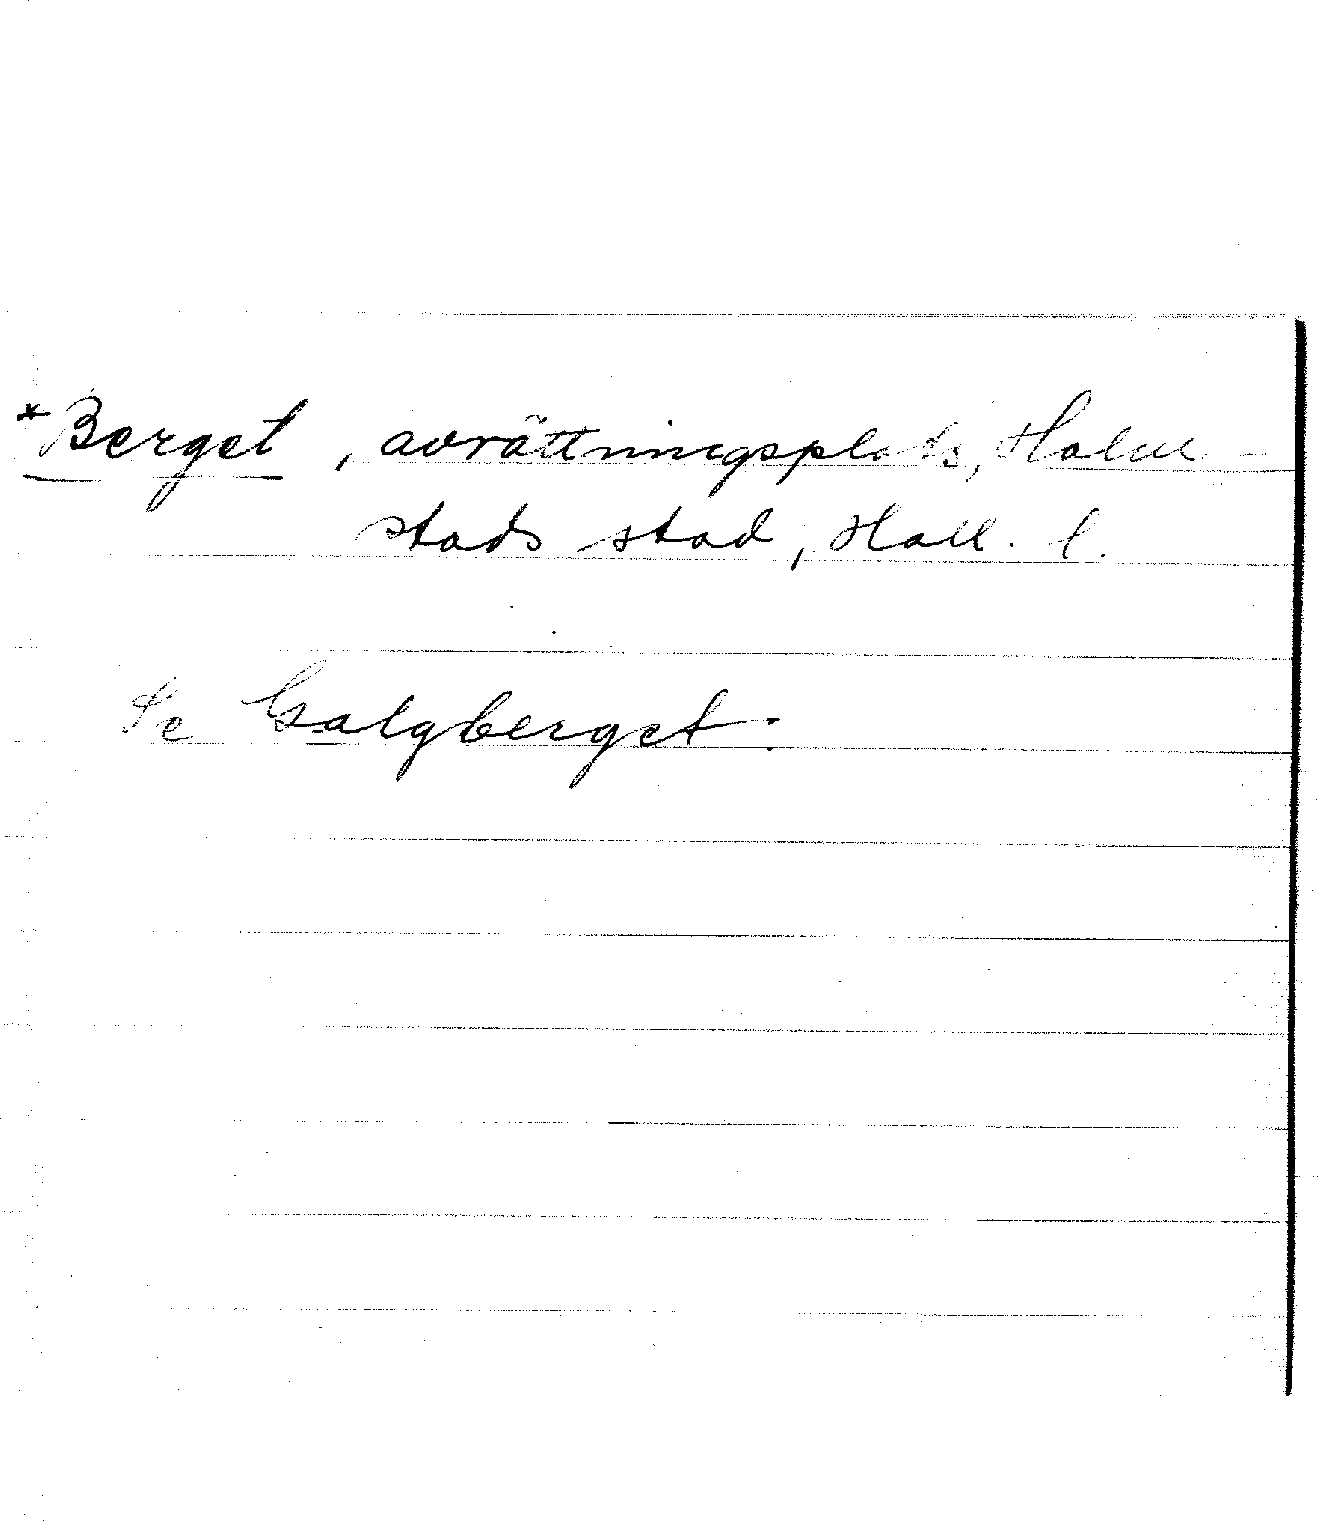 *Berget, avrättningsplats, Halm-
stads stad, Hall. l.
Se Galgberget.